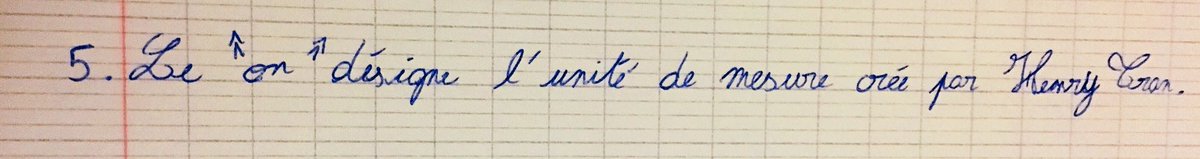 5. Le "on" désigne l'unité de mesure créé par Henry Cran.